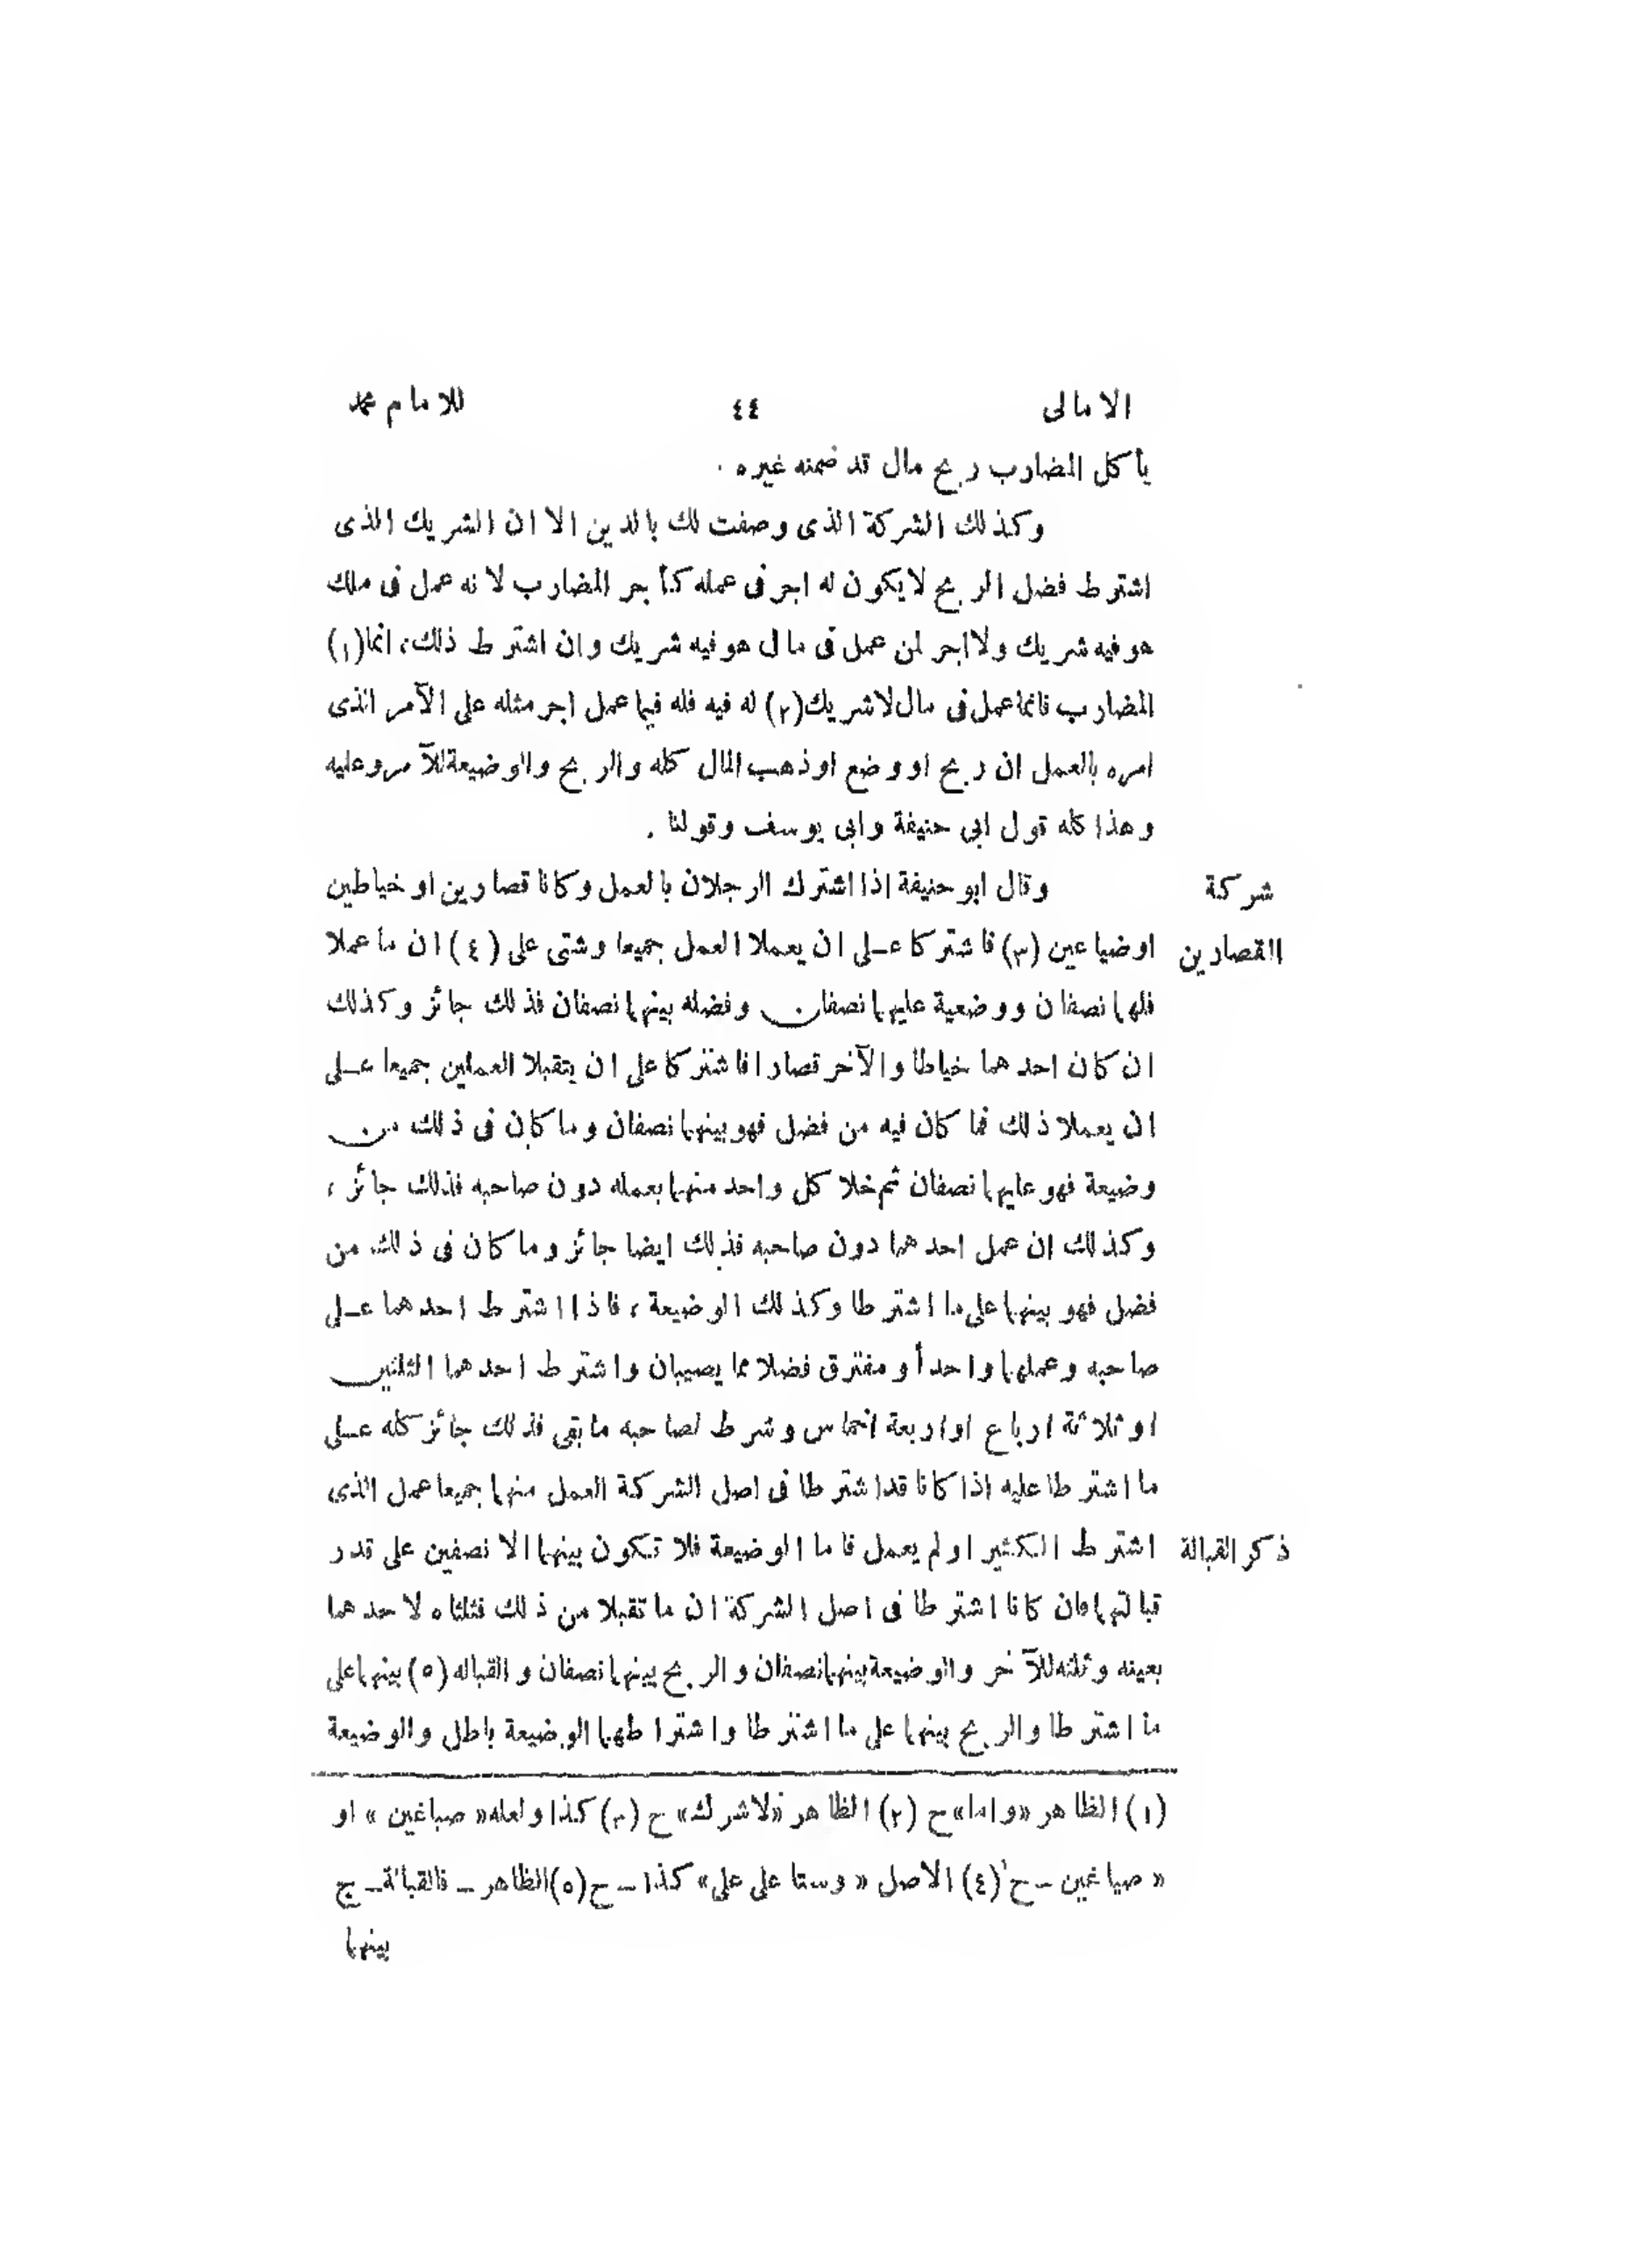 الامالى ٤٤ للامام محمد
يأكل المضارب ربح مال قد ضمنه غيره .
وكذلك الشركة الذى وصفت لك بالدين الا ان الشريك الذى
اشترط فضل الربح لا يكون له اجر فى عمله كأجر المضارب لانه عمل فى ملك
هو فيه شريك ولا اجر لمن عمل فى مال هو فيه شريك وان اشترط ذلك، انما (١)
المضارب فانما عمل فى مال لا شريك (٢) له فيه فله فيما عمل اجر مثله على الآمر الذى
امره بالعمل ان ربح او وضع او ذهب المال كله والربح والوضيعة للآمر وعليه
وهذا كله قول ابى حنيفة وابى يوسف وقولنا .
شركة القصارين
وقال ابو حنيفة اذا اشترك الرجلان بالعمل وكانا قصارين او خياطين
او ضياعين (٣) فاشتركا على ان يعملا العمل جميعا وشتى على (٤) ان ما عملا
فلهما نصفان ووضعية عليهما نصفان وفضله بينهما نصفان فذلك جائز وكذلك
ان كان احدهما خياطا والآخر قصارا فاشتركا على ان يتقبلا العملين جميعا على
ان يعملا ذلك فما كان فيه من فضل فهو بينهما نصفان وما كان فى ذلك من
وضيعة فهو عليهما نصفان ثم خلا كل واحد منهما بعمله دون صاحبه فذلك جائز ،
وكذلك ان عمل احدهما دون صاحبه فذلك ايضا جائز وما كان فى ذلك من
فضل فهو بينهما على ما اشترطا وكذلك الوضيعة ، فاذا اشترط احدهما على
صاحبه وعملهما واحد أو مفترق فضلا مما يصيبان واشترط احدهما الثلثين
او ثلاثة ارباع او اربعة اخماس وشرط لصاحبه ما بقى فذلك جائز كله على
ما اشترطا عليه اذا كانا قد اشترطا فى اصل الشركة العمل منهما جميعا عمل الذى
ذكر القبالة
اشترط الكثير او لم يعمل فاما الوضيعة فلا تكون بينهما الا نصفين على قدر
قبالتهما فان كانا اشترطا فى اصل الشركة ان ما تقبلا من ذلك فثلثاه لاحدهما
بعينه وثلثه للآخر والوضيعة بينهما نصفان والربح بينهما نصفان والقباله (٥) بينهما على
ما اشترطا والربح بينهما على ما اشترطا واشتراطهما الوضيعة باطل والوضيعة
(١) الظاهر «واما» ح (٢) الظاهر «لا شرك» ح (٣) كذا ولعله «صباغين» او
«صياغين - ح (٤) الاصل «وستا على على» كذا - ح (٥) الظاهر - فالقبالة - ح
بينهما